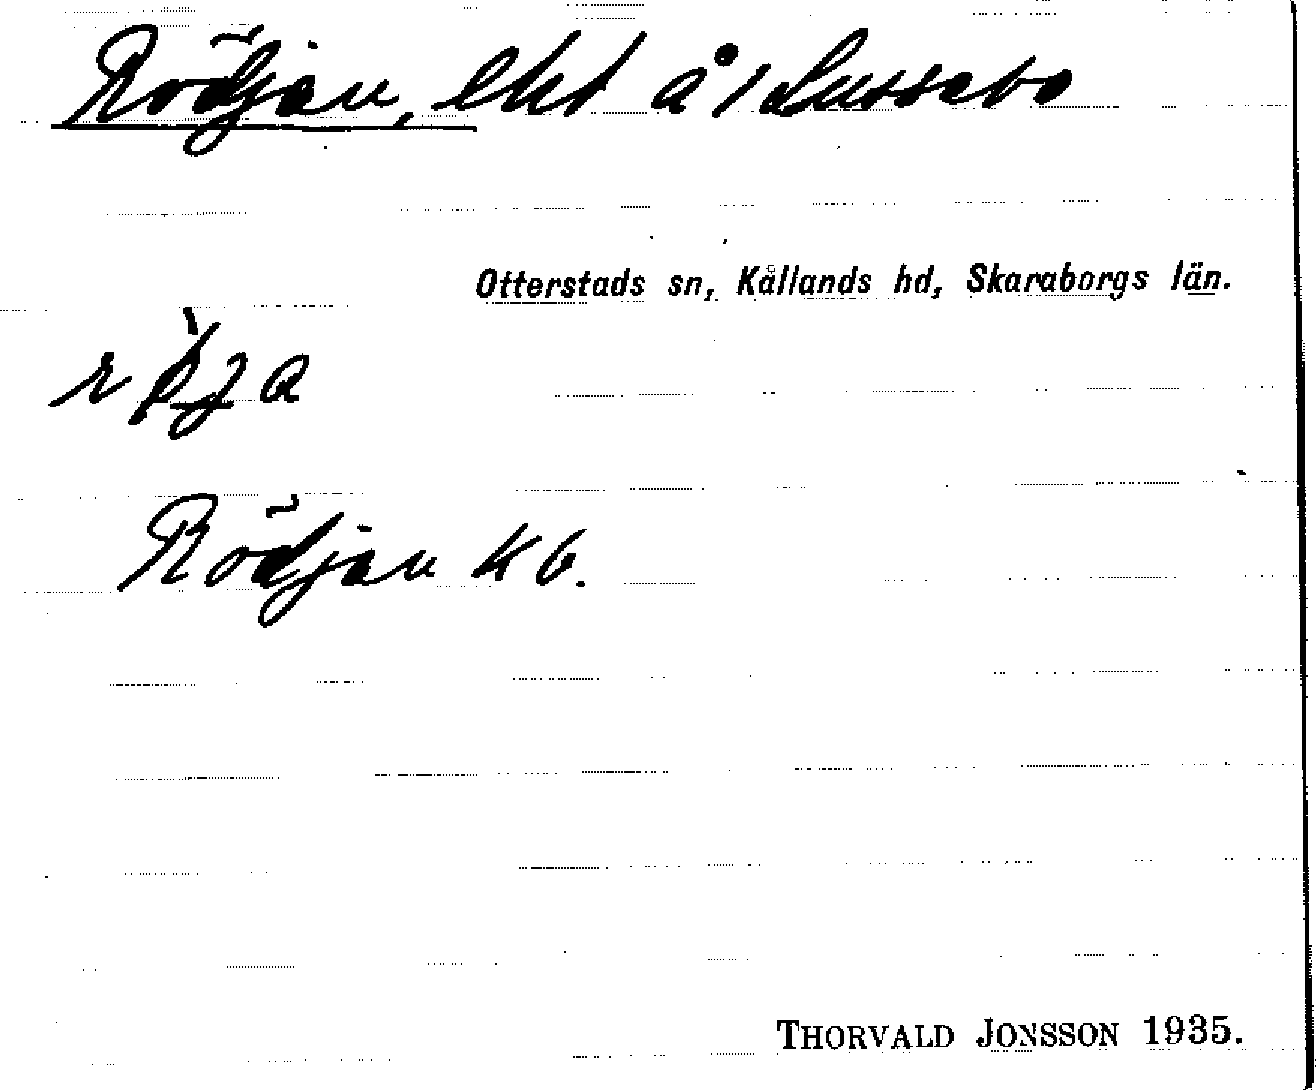 Rödjan, lht å 1 Lussebo
Otterstads sn, Kållands hd, Skaraborgs län.
rö̀ja
Rödjan kb.
THORVALD JONSSON 1935.